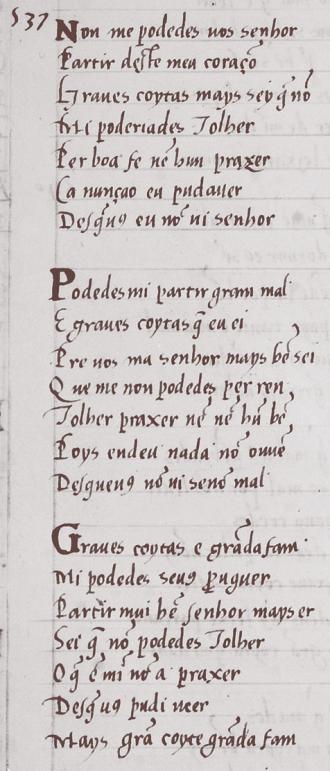 537
Non me podedes uos senhor
Partir deste meu coraçõ
Graues coytas mays sey q̃ nõ
Mi poderiades Tolher
Per boa fe nẽ hun praxer
Ca nunçao eu pud auer
Desq̃ uꝯ eu nõ ui senhor
Podedes mi partir gram mal
E graues coytas q̃ eu ei
Pre uos ma senhor mays bẽ sei
Que me non podedes per ren
Tolher praxer nẽ nẽ hũ bẽ
Poys endeu nada nõ ouue
Desqueuꝯ nõ ui senõ mal
Graues coytas e grãda fam
Mi podedes seuꝯ ꝓuguer
Partir mui bẽ senhor mays er
Sei q̃ nõ podedes Tolher
O q̃ ẽ mĩ nõ a praxer
Desq̃ uꝯ pudi ueer
Mays grã coyte grãda fam